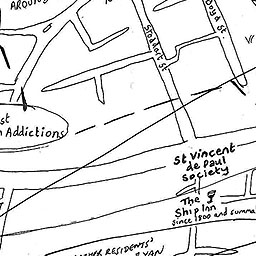 AROUND
Stoddart St
Boyd St
st
n Addictions
St Vincent
de Paul
Society
The
Ship Inn
Since 1800 and summat
OTHER RESIDENTS'